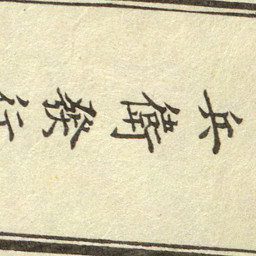 兵衛發行